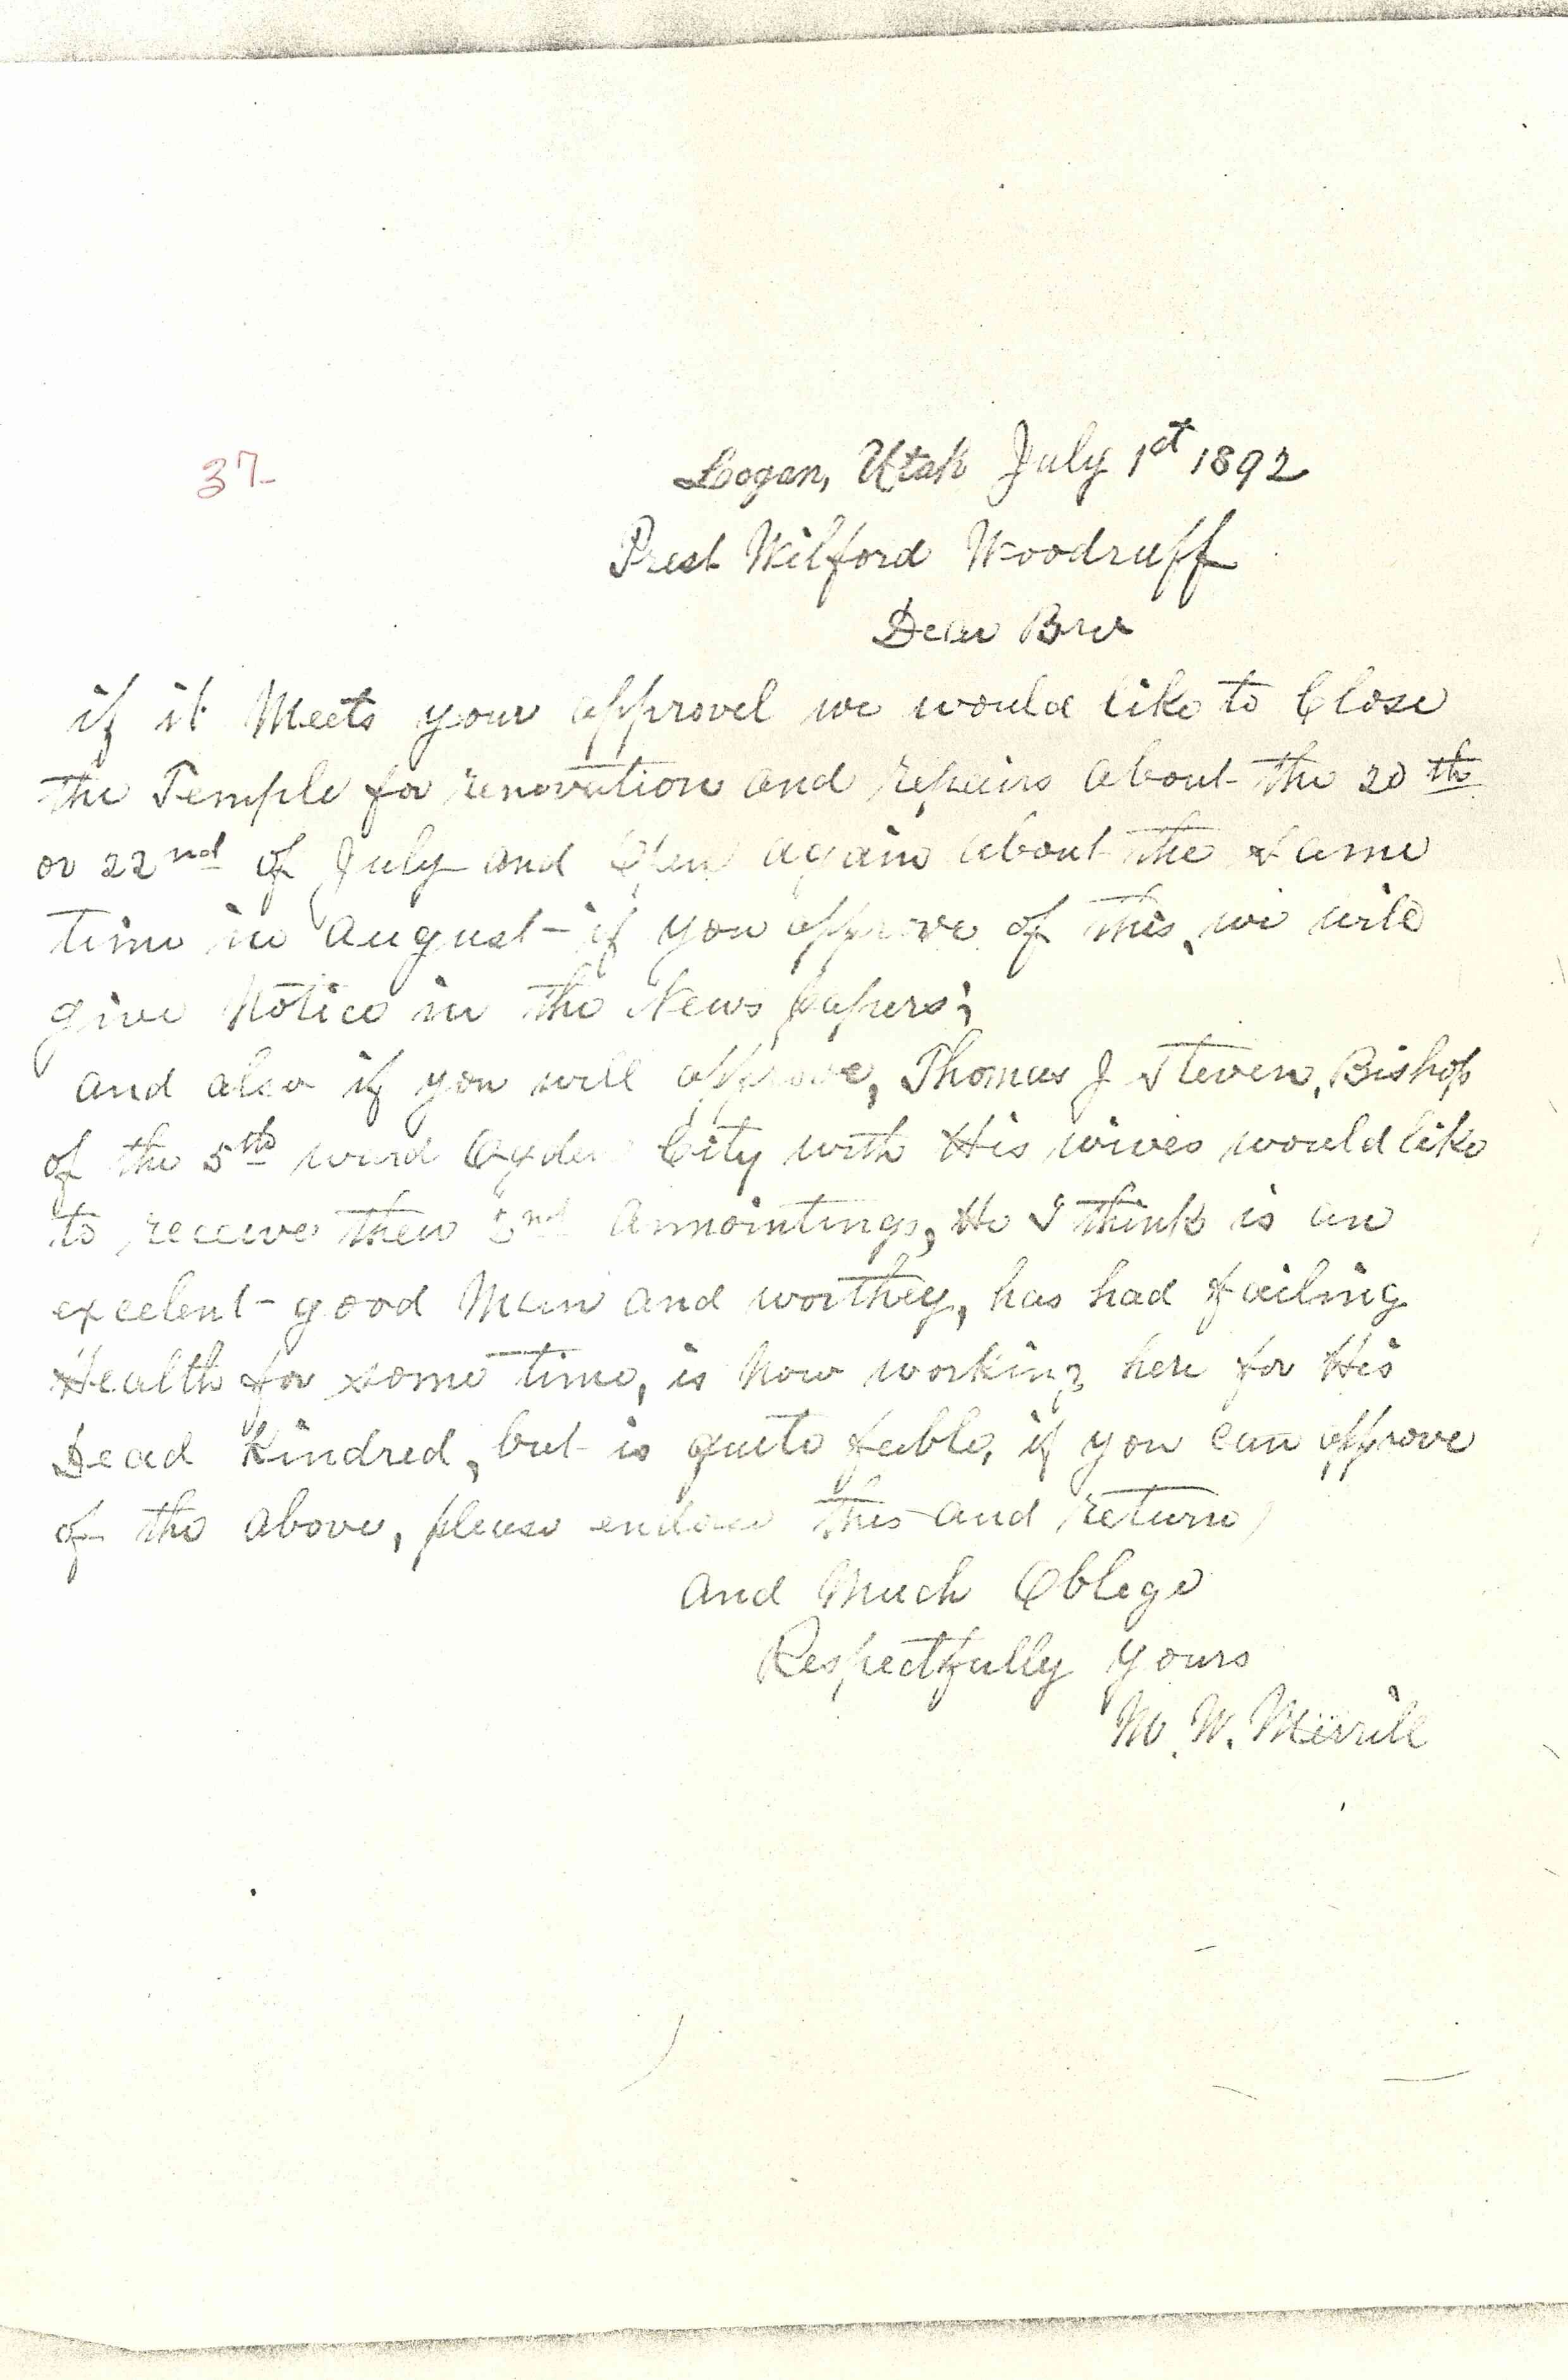 37-
Logan, Utah July 1st 1892
Prest Wilford Woodruff
Dear Bro
if it Meets your approvel we would like to Close
the Temple for renovation and repairs about the 20th
or 22nd of July and Open again about the same
time in August - if you approve of this, we will
give Notice in the News papers;
and also if you will approve, Thomas J Steven, Bishop
of the 5th ward Ogden City with His wives would like
to receive their 2nd Annointings, He I think is an
excelent - good Man and worthey, has had failing
Health for some time, is Now working here for His
Dead Kindred, but is quite feble, if you can approve
of the above, please endorse this and return
and Much Oblege
Respectfully yours
M. W. Merrill